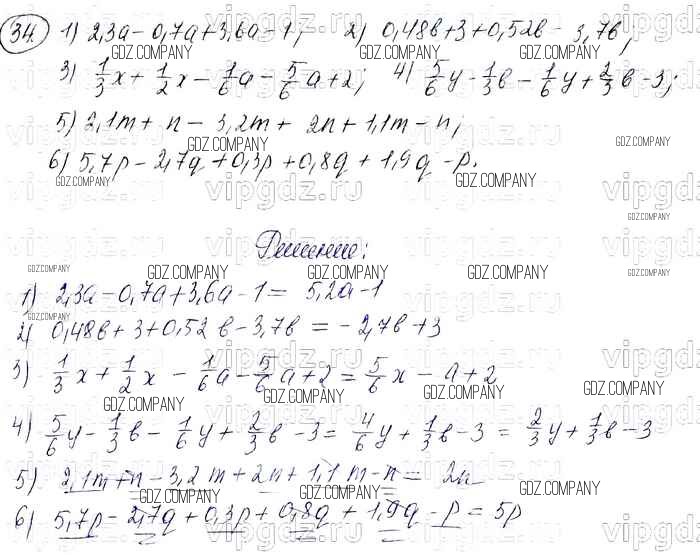 34. 1) 2,3a - 0,7a + 3,6a - 1; 2) 0,48в + 3 + 0,52в - 3,7в;
3) 1/3 x + 1/2 x - 1/6 a - 5/6 a + 2; 4) 5/6 y - 1/3 в - 1/6 y + 2/3 в - 3;
5) 2,1m + n - 3,2m + 2n + 1,1m - n;
6) 5,7p - 2,7q + 0,3p + 0,8q + 1,9q - p.
Решение:
1) 2,3a - 0,7a + 3,6a - 1 = 5,2a - 1
2) 0,48в + 3 + 0,52в - 3,7в = - 2,7в + 3
3) 1/3 x + 1/2 x - 1/6 a - 5/6 a + 2 = 5/6 x - a + 2
4) 5/6 y - 1/3 в - 1/6 y + 2/3 в - 3 = 4/6 y + 1/3 в - 3 = 2/3 y + 1/3 в - 3
5) 2,1m + n - 3,2m + 2n + 1,1m - n = 2n
6) 5,7p - 2,7q + 0,3p + 0,8q + 1,9q - p = 5p